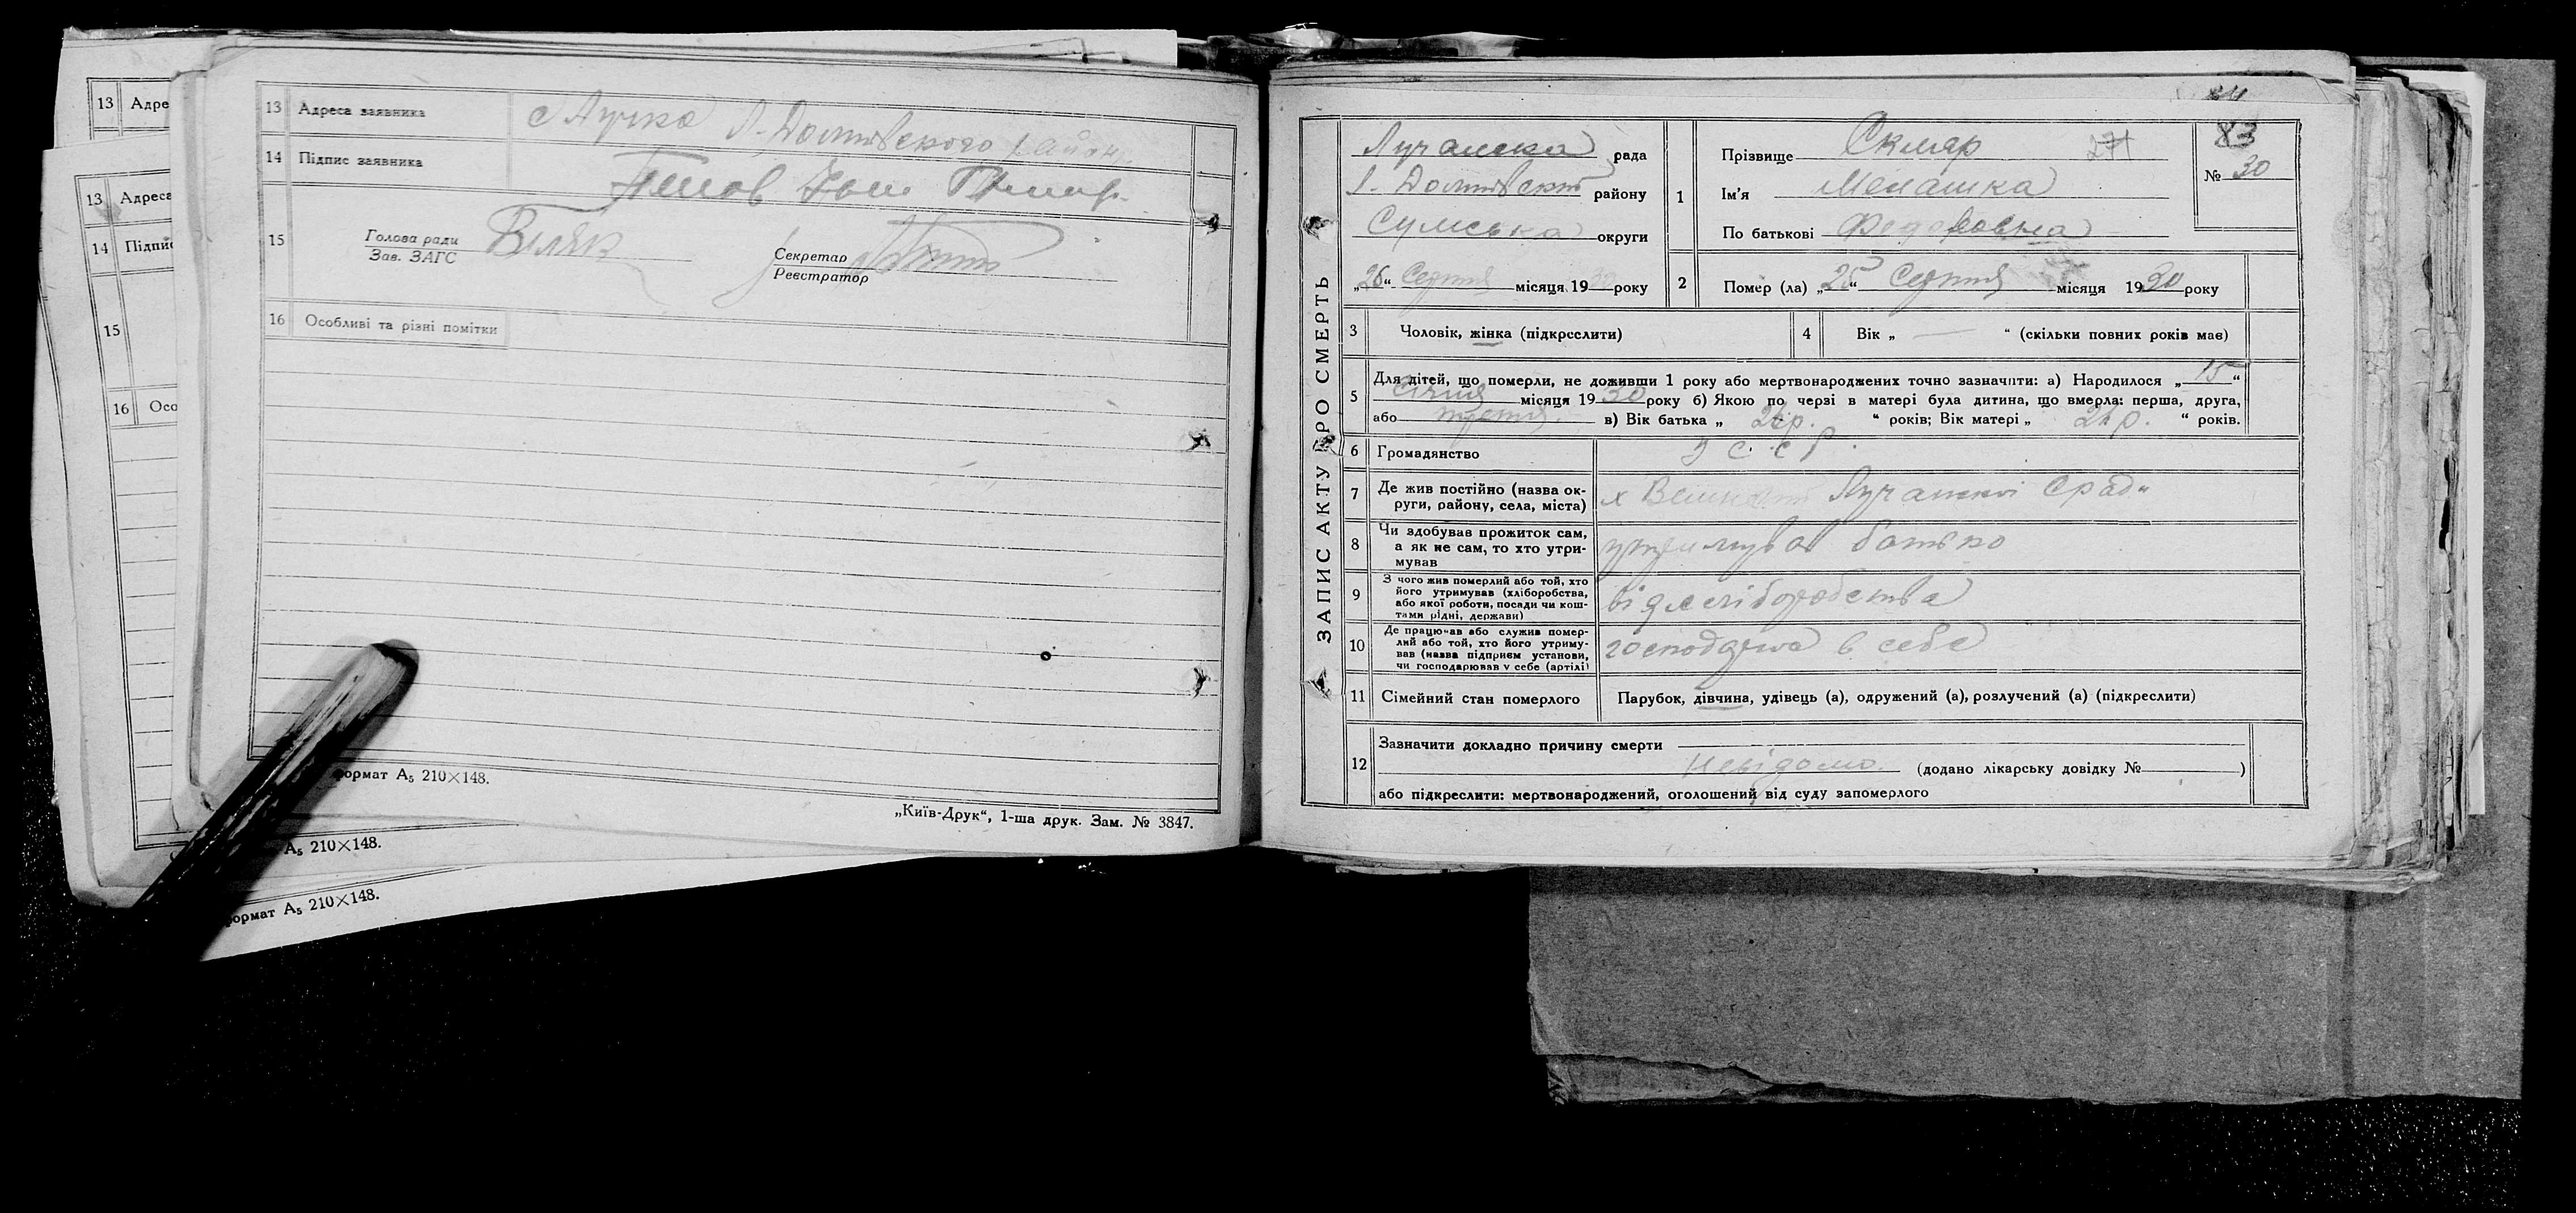 13 Адре
13 Адреса
14 Підпис
15
16 Осо
13 Адреса заявника с Лучка Л-Долинского району
14 Підпис заявника
15 Голова ради Біляк Секретар
Зав. ЗАГС Реєстратор
16 Особливі та різні помітки
формат А5 210×148.
„Київ-Друк“, 1-ша друк. Зам. № 3847.
А5 210×148.
формат А5 210×148.
ЗАПИС АКТУ ПРО СМЕРТЬ
83
№ 30
Лучанска рада
району
Сумська округи
„26“ Серпня місяця 1930 року
1 Прізвище Скляр 271
Ім'я Мелашка
По батькові Федоровна
2 Помер (ла) „25“ Серпня місяця 1930 року
3 Чоловік, жінка (підкреслити)
4 Вік „ — “ (скільки повних років має)
5 Для дітей, що померли, не доживши 1 року або мертвонароджених точно зазначити: а) Народилося „15“
Січня місяця 1930 року б) Якою по черзі в матері була дитина, що вмерла: перша, друга,
або третя. в) Вік батька „ “ років; Вік матері „ “ років.
6 Громадянство УССР.
7 Де жив постійно (назва ок-
руги, району, села, міста) х Лучанскоі Срад
8 Чи здобував прожиток сам,
а як не сам, то хто утри-
мував
утримував батько
9 З чого жив померлий або той, хто
його утримував (хліборобства,
або якої роботи, посади чи кош-
тами рідні, держави)
від хліборобства
10 Де працював або служив помер-
лий або той, хто його утриму-
вав (назва підприєм установи,
чи господарював у себе (артілі)
господарка в себе
11 Сімейний стан померлого Парубок, дівчина, удівець (а), одружений (а), розлучений (а) (підкреслити)
12 Зазначити докладно причину смерти
Невідомо. (додано лікарську довідку № )
або підкреслити: мертвонароджений, оголошений від суду запомерлого